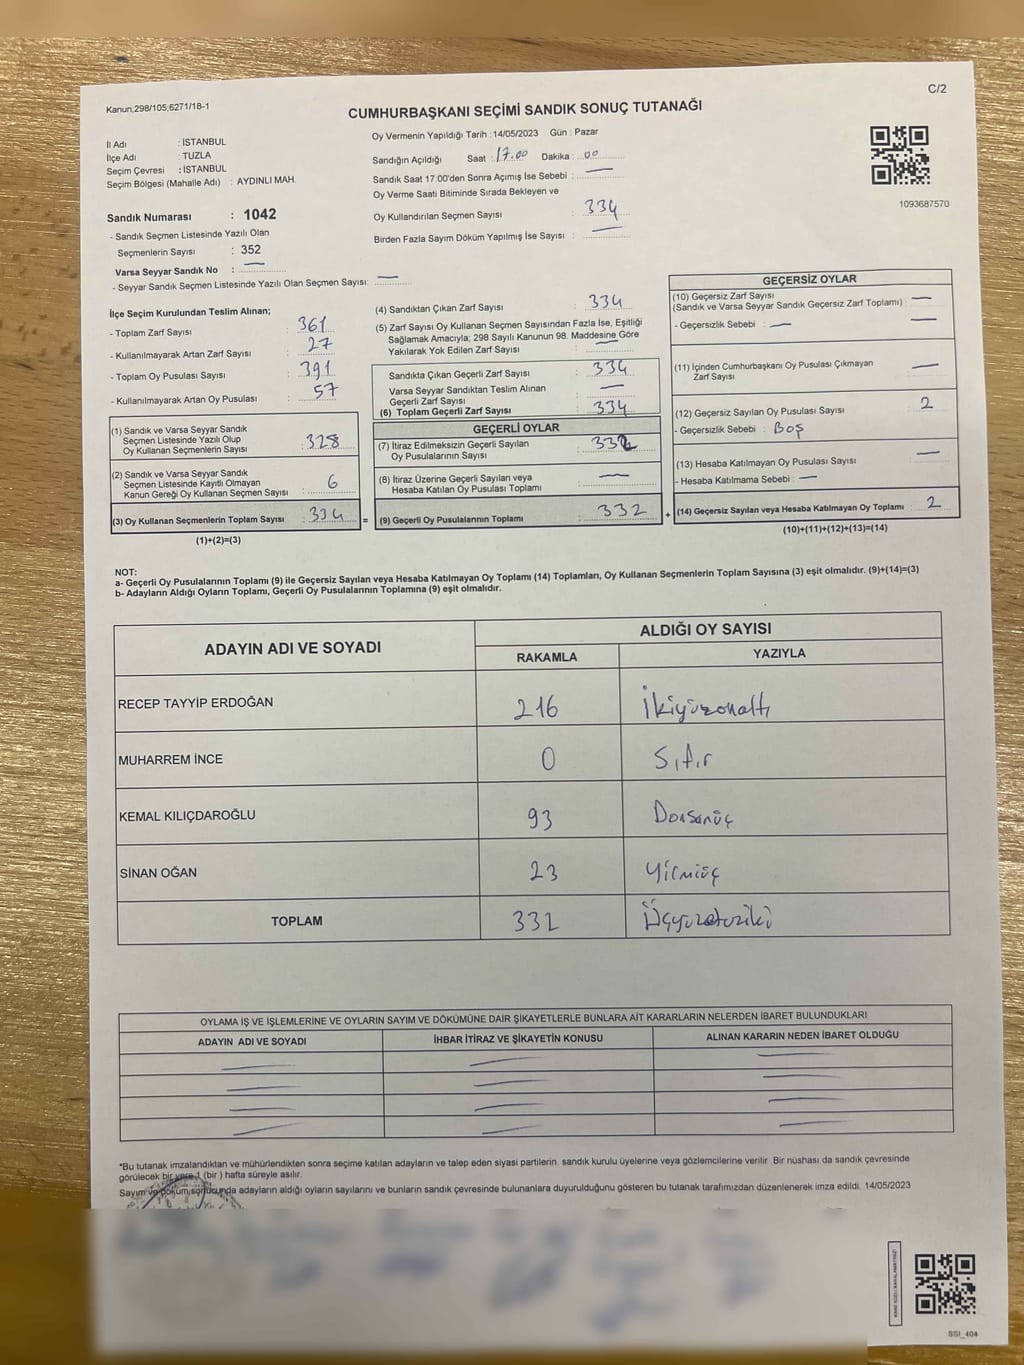 Kanun;298/105;6271/18-1
C/2
CUMHURBAŞKANI SEÇİMİ SANDIK SONUÇ TUTANAĞI
İl Adı : İSTANBUL
İlçe Adı : TUZLA
Seçim Çevresi : İSTANBUL
Seçim Bölgesi (Mahalle Adı) : AYDINLI MAH.
Oy Vermenin Yapıldığı Tarih : 14/05/2023 Gün : Pazar
Sandığın Açıldığı Saat : 17.00 Dakika : 00
Sandık Saat 17:00'den Sonra Açımış İse Sebebi : —
Oy Verme Saati Bitiminde Sırada Bekleyen ve
Oy Kullandırılan Seçmen Sayısı : 334
Birden Fazla Sayım Döküm Yapılmış İse Sayısı : —
1093687570
Sandık Numarası : 1042
- Sandık Seçmen Listesinde Yazılı Olan
Seçmenlerin Sayısı : 352
Varsa Seyyar Sandık No : —
- Seyyar Sandık Seçmen Listesinde Yazılı Olan Seçmen Sayısı: —
İlçe Seçim Kurulundan Teslim Alınan;
- Toplam Zarf Sayısı : 361
- Kullanılmayarak Artan Zarf Sayısı : 27
- Toplam Oy Pusulası Sayısı : 391
- Kullanılmayarak Artan Oy Pusulası : 57
(1) Sandık ve Varsa Seyyar Sandık
Seçmen Listesinde Yazılı Olup
Oy Kullanan Seçmenlerin Sayısı : 328
(2) Sandık ve Varsa Seyyar Sandık
Seçmen Listesinde Kayıtlı Olmayan
Kanun Gereği Oy Kullanan Seçmen Sayısı : 6
(3) Oy Kullanan Seçmenlerin Toplam Sayısı : 334
(1)+(2)=(3)
(4) Sandıktan Çıkan Zarf Sayısı : 334
(5) Zarf Sayısı Oy Kullanan Seçmen Sayısından Fazla İse, Eşitliği
Sağlamak Amacıyla; 298 Sayılı Kanunun 98. Maddesine Göre
Yakılarak Yok Edilen Zarf Sayısı : —
Sandıkta Çıkan Geçerli Zarf Sayısı : 334
Varsa Seyyar Sandıktan Teslim Alınan
Geçerli Zarf Sayısı : —
(6) Toplam Geçerli Zarf Sayısı : 334
GEÇERLİ OYLAR
(7) İtiraz Edilmeksizin Geçerli Sayılan
Oy Pusulalarının Sayısı : 332
(8) İtiraz Üzerine Geçerli Sayılan veya
Hesaba Katılan Oy Pusulası Toplamı : —
= (9) Geçerli Oy Pusulalarının Toplamı : 332
GEÇERSİZ OYLAR
(10) Geçersiz Zarf Sayısı
(Sandık ve Varsa Seyyar Sandık Geçersiz Zarf Toplamı) : —
- Geçersizlik Sebebi : —
(11) İçinden Cumhurbaşkanı Oy Pusulası Çıkmayan
Zarf Sayısı : —
(12) Geçersiz Sayılan Oy Pusulası Sayısı : 2
- Geçersizlik Sebebi : Boş
(13) Hesaba Katılmayan Oy Pusulası Sayısı : —
- Hesaba Katılmama Sebebi : —
+ (14) Geçersiz Sayılan veya Hesaba Katılmayan Oy Toplamı : 2
(10)+(11)+(12)+(13)=(14)
NOT:
a- Geçerli Oy Pusulalarının Toplamı (9) ile Geçersiz Sayılan veya Hesaba Katılmayan Oy Toplamı (14) Toplamları, Oy Kullanan Seçmenlerin Toplam Sayısına (3) eşit olmalıdır. (9)+(14)=(3)
b- Adayların Aldığı Oyların Toplamı, Geçerli Oy Pusulalarının Toplamına (9) eşit olmalıdır.
ADAYIN ADI VE SOYADI
ALDIĞI OY SAYISI
RAKAMLA YAZIYLA
RECEP TAYYİP ERDOĞAN 216 İkiyüzonaltı
MUHARREM İNCE 0 Sıfır
KEMAL KILIÇDAROĞLU 93 Doksanüç
SİNAN OĞAN 23 Yirmiüç
TOPLAM 332 Üçyüzotuziki
OYLAMA İŞ VE İŞLEMLERİNE VE OYLARIN SAYIM VE DÖKÜMÜNE DAİR ŞİKAYETLERLE BUNLARA AİT KARARLARIN NELERDEN İBARET BULUNDUKLARI
ADAYIN ADI VE SOYADI İHBAR İTİRAZ VE ŞİKAYETİN KONUSU ALINAN KARARIN NEDEN İBARET OLDUĞU
*Bu tutanak imzalandıktan ve mühürlendikten sonra seçime katılan adayların ve talep eden siyasi partilerin, sandık kurulu üyelerine veya gözlemcilerine verilir. Bir nüshası da sandık çevresinde
görülecek bir yere 1 (bir ) hafta süreyle asılır.
Sayım ve döküm sonucunda adayların aldığı oyların sayılarını ve bunların sandık çevresinde bulunanlara duyurulduğunu gösteren bu tutanak tarafımızdan düzenlenerek imza edildi. 14/05/2023
SSI_404